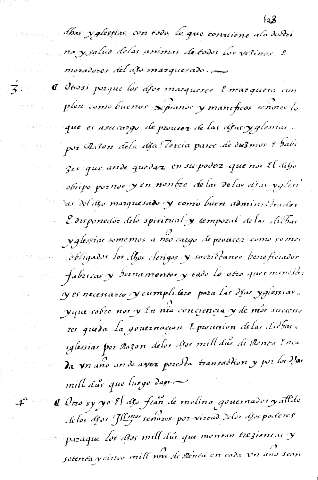 dhas yglesias con todo lo que conviene ala
no y salud delas animas de todos los vezinos E
moradores del dho marquesado.
3. Otrosi porque los dhos marqueses E marquesa cun
plen como buenos xpianos y magnificos señores lo
que es asu cargo de proveer de las dhas yglesias
por Razon dela dha Tercia parte de diezmos E
zes que an de quedar en su poder que nos El dho
obispo por nos y en nombre delas de las dhas yglesi
as del dho marquesado y como buen administrador
E dispenedor delo spiritual y temporal de las dichas
yglesias tomemos a nro cargo de proveer como somos
obligados los dhos clerigos y sacristanes beneficiados
fabricas y hornamentos y todo lo otro que
y es necesario y cumplidero para las dhas yglesias
y que sobre nos y la nra conciencia y de nros suceso
res queda la governacion E provision de las dichas
yglesias por Razon delos dhos mill dus de Renta En ca
da un año an de aver por esta transaction y por los dhos
mill dus que luego dan.
4. Otro sy yo El dho Juan de molina governador y allde
de los dhos Illmos señores por virtud delos dhos poderes
para que los dhos mill dus que montan trezientas y
setenta y cinco mill mrs de Renta en cada un año sean